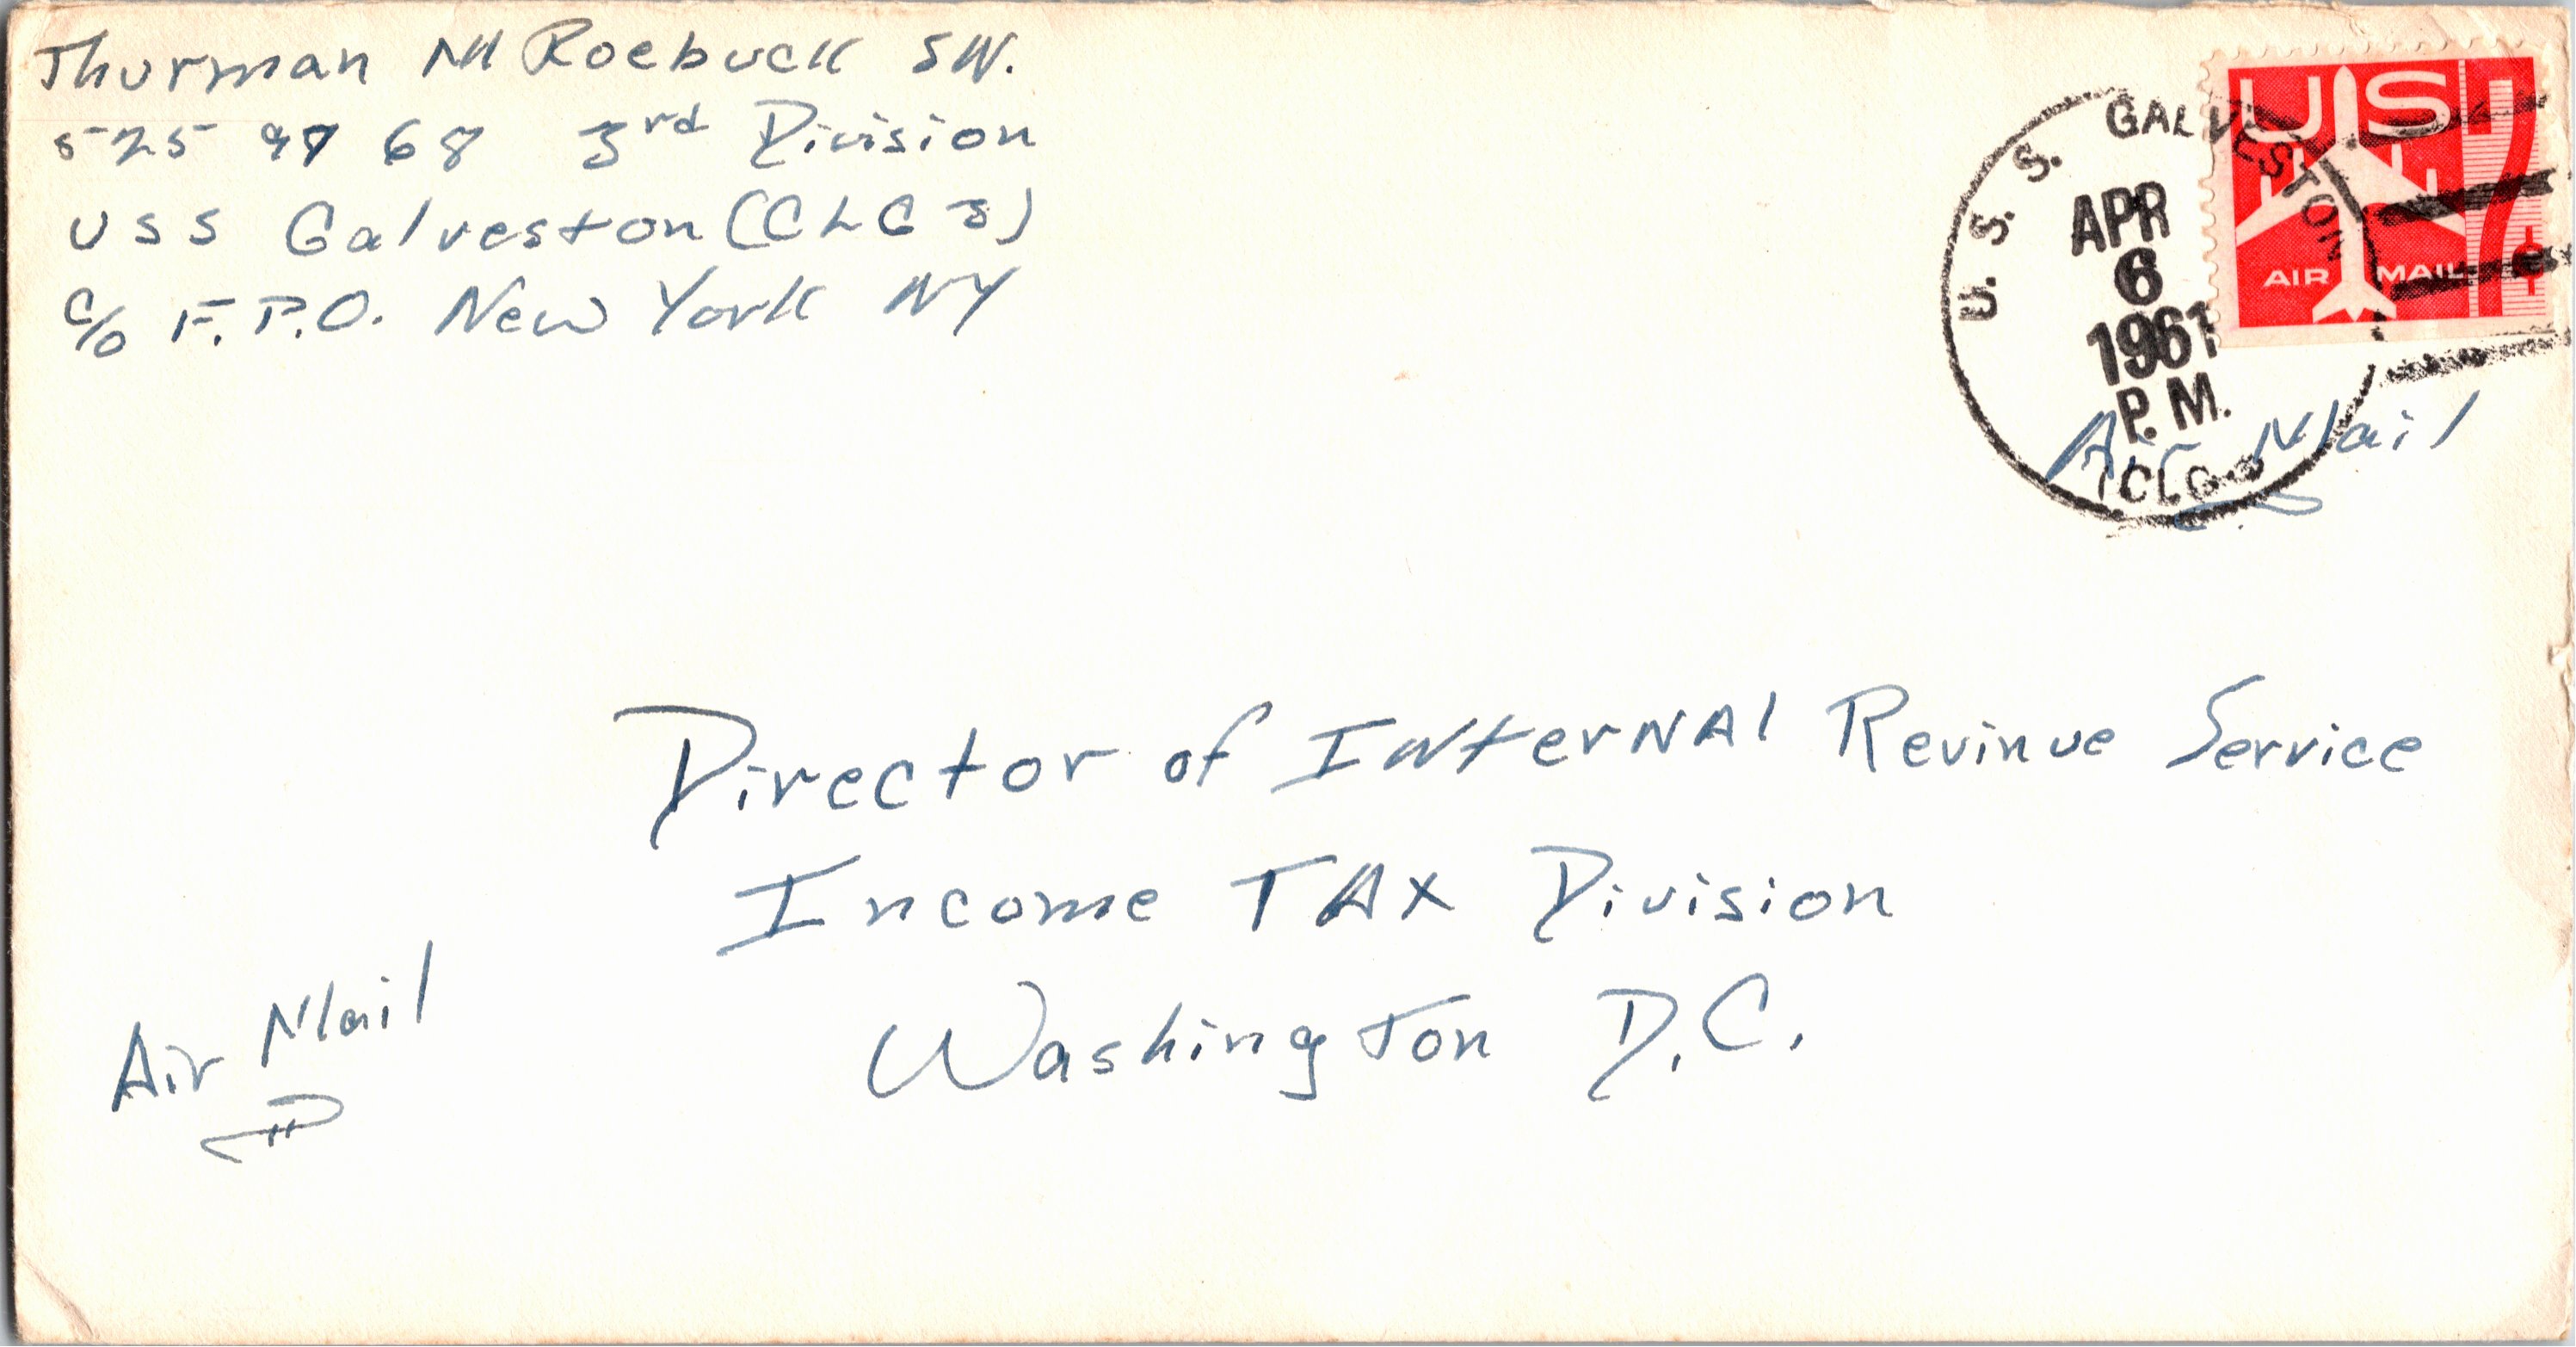 Thurman M Roebuck SN.
525 97 68 3rd Division
USS Galveston (CLG 3)
c/o F.P.O. New York NY
U.S.S. GALVESTON
APR
6
1961
P.M.
(CLG-3)
US
7¢
AIR MAIL
Air Mail
Director of InterNAl Revinue Service
Income TAx Division
Washington D.C.
Air Mail